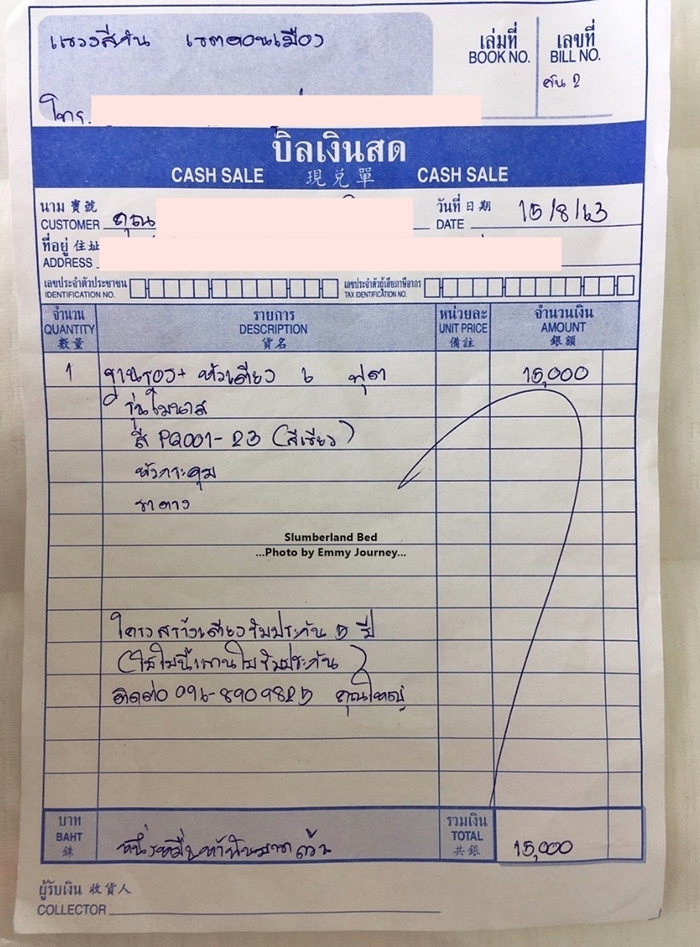 แขวงสีกัน เขตดอนเมือง
เล่มที่ เลขที่
BOOK NO. BILL NO.
โทร.
บิลเงินสด
CASH SALE 現兌單 CASH SALE
นาม 寳號 วันที่ 日期 15/8/63
CUSTOMER คุณ DATE
ที่อยู่ 住址
ADDRESS
เลขประจำตัวประชาชน เลขประจำตัวผู้เสียภาษีอากร
IDENTIFICATION NO. TAX IDENTIFICATION NO.
จำนวน รายการ หน่วยละ จำนวนเงิน
QUANTITY DESCRIPTION UNIT PRICE AMOUNT
數量 貨名 備註 銀額
1 ฐานรอง+ หัวเตียง 6 ฟุต 15,000
รุ่นโมนาส
สี PQ001-23 (สีเรียว)
หัวกระดุม
ขาตาง
Slumberland Bed
...Photo by Emmy Journey...
โครงสร้างเตียงรับประกัน 5 ปี
(ใช้ใบนี้แทนใบรับประกัน)
ติดต่อ 096-8909825 คุณใหญ่
บาท รวมเงิน
BAHT หนึ่งหมื่นห้าพันบาทถ้วน TOTAL 15,000
銖 共銀
ผู้รับเงิน 收貨人
COLLECTOR